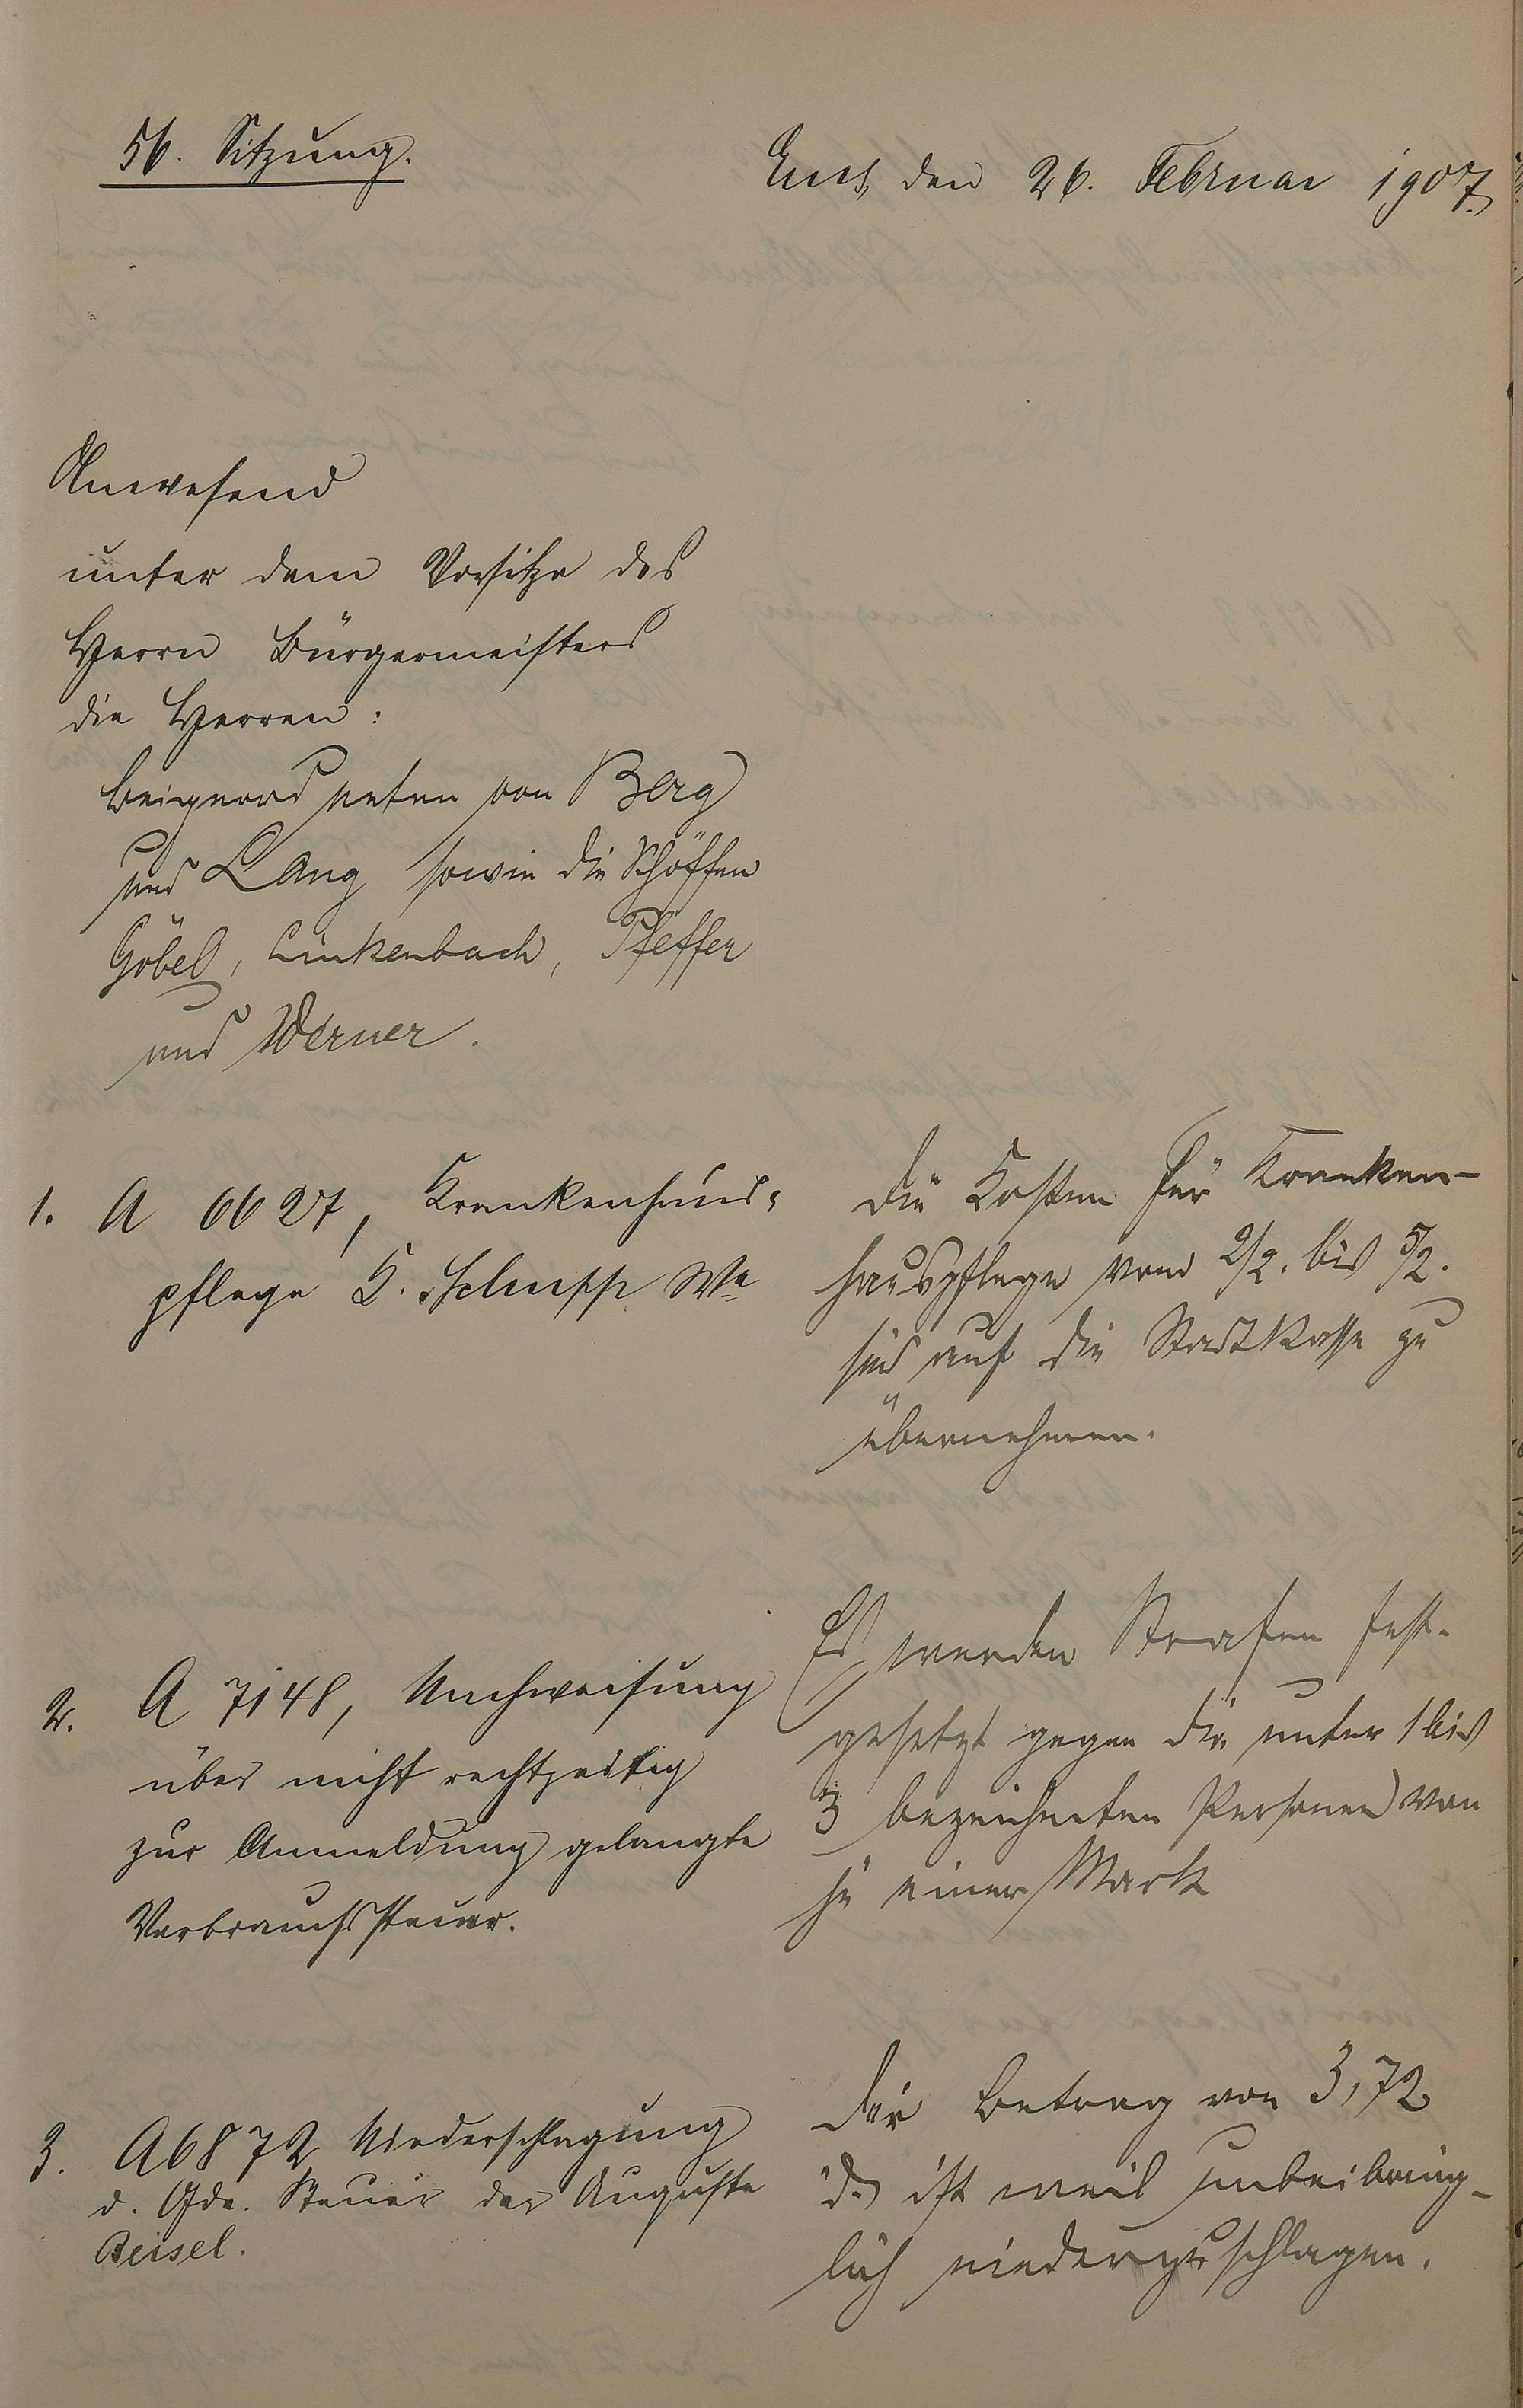 56. Sitzung.
Ems, den 26. Februar 1907.
Anwesend
unter dem Vorsitze des
Herrn Bürgermeisters
die Herren:
Beigeordneten von Berg
und Lang sowie die Schöffen
Göbel, Linkenbach, Pfeffer
und Werner.
1. A 6627, Krankenhaus-
pflege K. Schupp We
Die Kosten für Kranken-
hauspflege vom 2/2. bis 5/2.
sind auf die Stadtkasse zu
übernehmen.
2. A 7148, Nachweisung
über nicht rechtzeitig
zur Anmeldung gelangte
Verbrauchssteuer.
Es werden Strafen fest-
gesetzt gegen die unter 1 bis
3 bezeichneten Personen von
je einer Mark
3. A 6872 Niederschlagung
d. Gde. Steuer der Auguste
Beisel.
Der Betrag von 3,72
ist weil unbeibring-
lich niederzuschlagen.